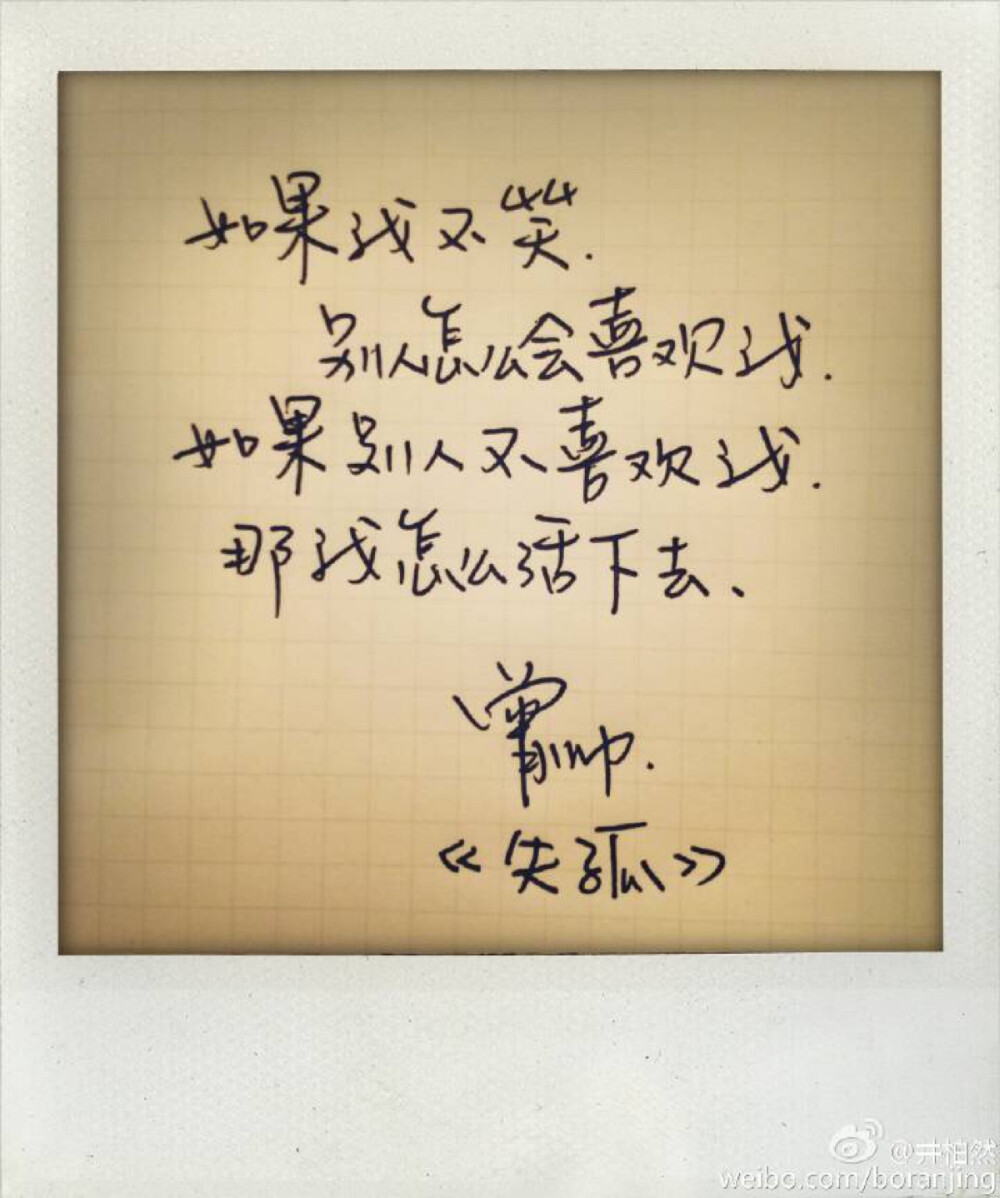 如果我不笑.
别人怎么会喜欢我.
如果别人不喜欢我.
那我怎么活下去、
曾帅.
《失孤》
@井柏然
weibo.com/boranjing